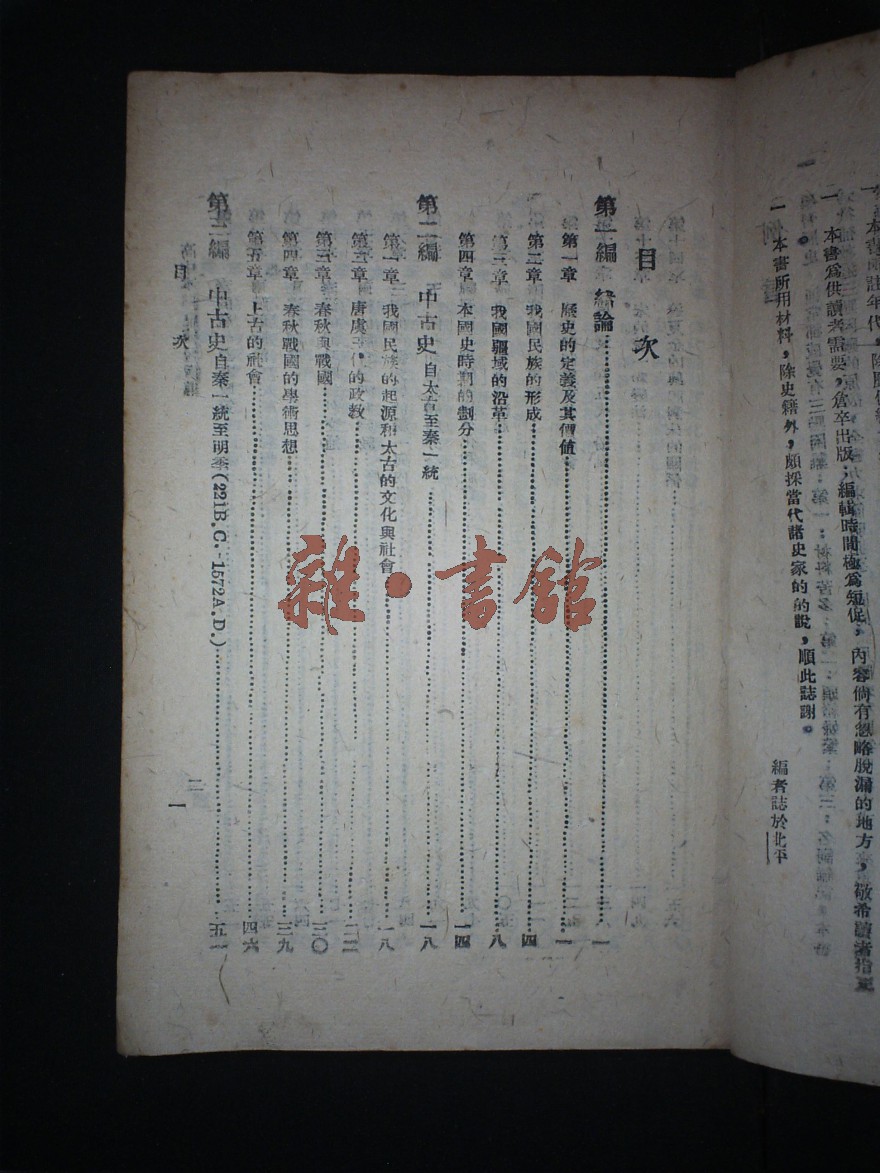 一 本書爲供讀者需要，倉卒出版；編輯時間極爲短促；內容倘有忽略脫漏的地方，敬希讀者指正
一 本書所用材料，除史籍外，頗採當代諸史家的的說，順此誌謝。
編者誌於北平
目次
第一編 緒論 一
第一章 歷史的定義及其價値 一
第二章 我國民族的形成 四
第三章 我國疆域的沿革 八
第四章 本國史時期的劃分 一四
第二編 中古史 自太古至秦一統 一八
第一章 我國民族的起源和太古的文化與社會 一八
第二章 唐虞三代的政教 二二
第三章 春秋與戰國 三〇
第四章 春秋戰國的學術思想 三九
第五章 上古的社會 四六
第三編 中古史 自秦一統至明季(221B.C.-1572A.D.) 五一
目次
一
雜·書館